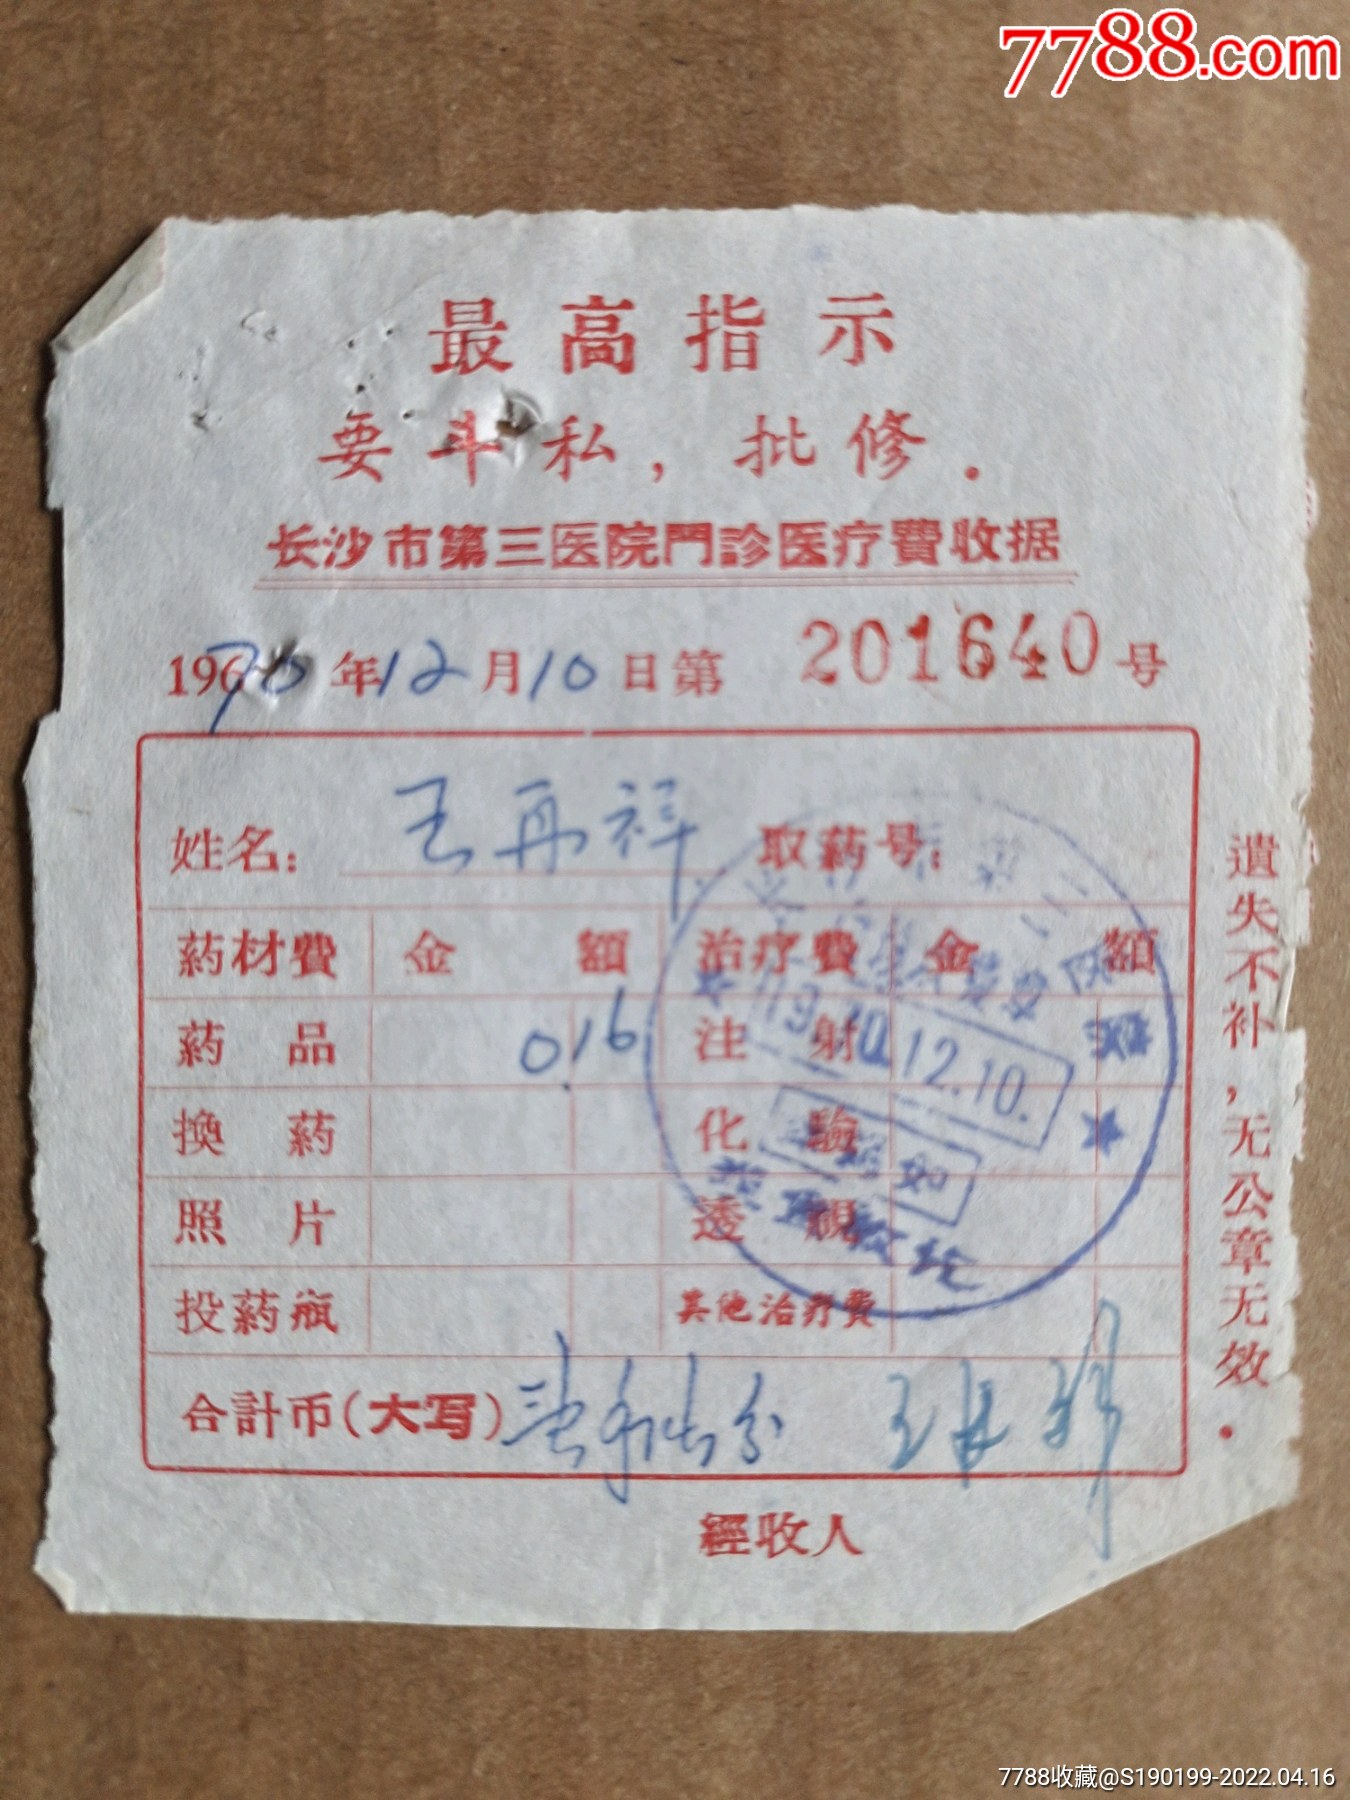 7788.com
最高指示
要斗私，批修.
长沙市第三医院門診医疗費收据
1970年12月10日第 201640 号
姓名： 王再祥 取葯号：
葯材費 金 額 治疗費 金 額
葯 品 0.16 注 射
換 葯 化 驗
照 片 透 視
投葯瓶 其他治疗費
合計币(大写)
經收人
遺失不补，无公章无效.
1970.12.10.
7788收藏@S190199-2022.04.16